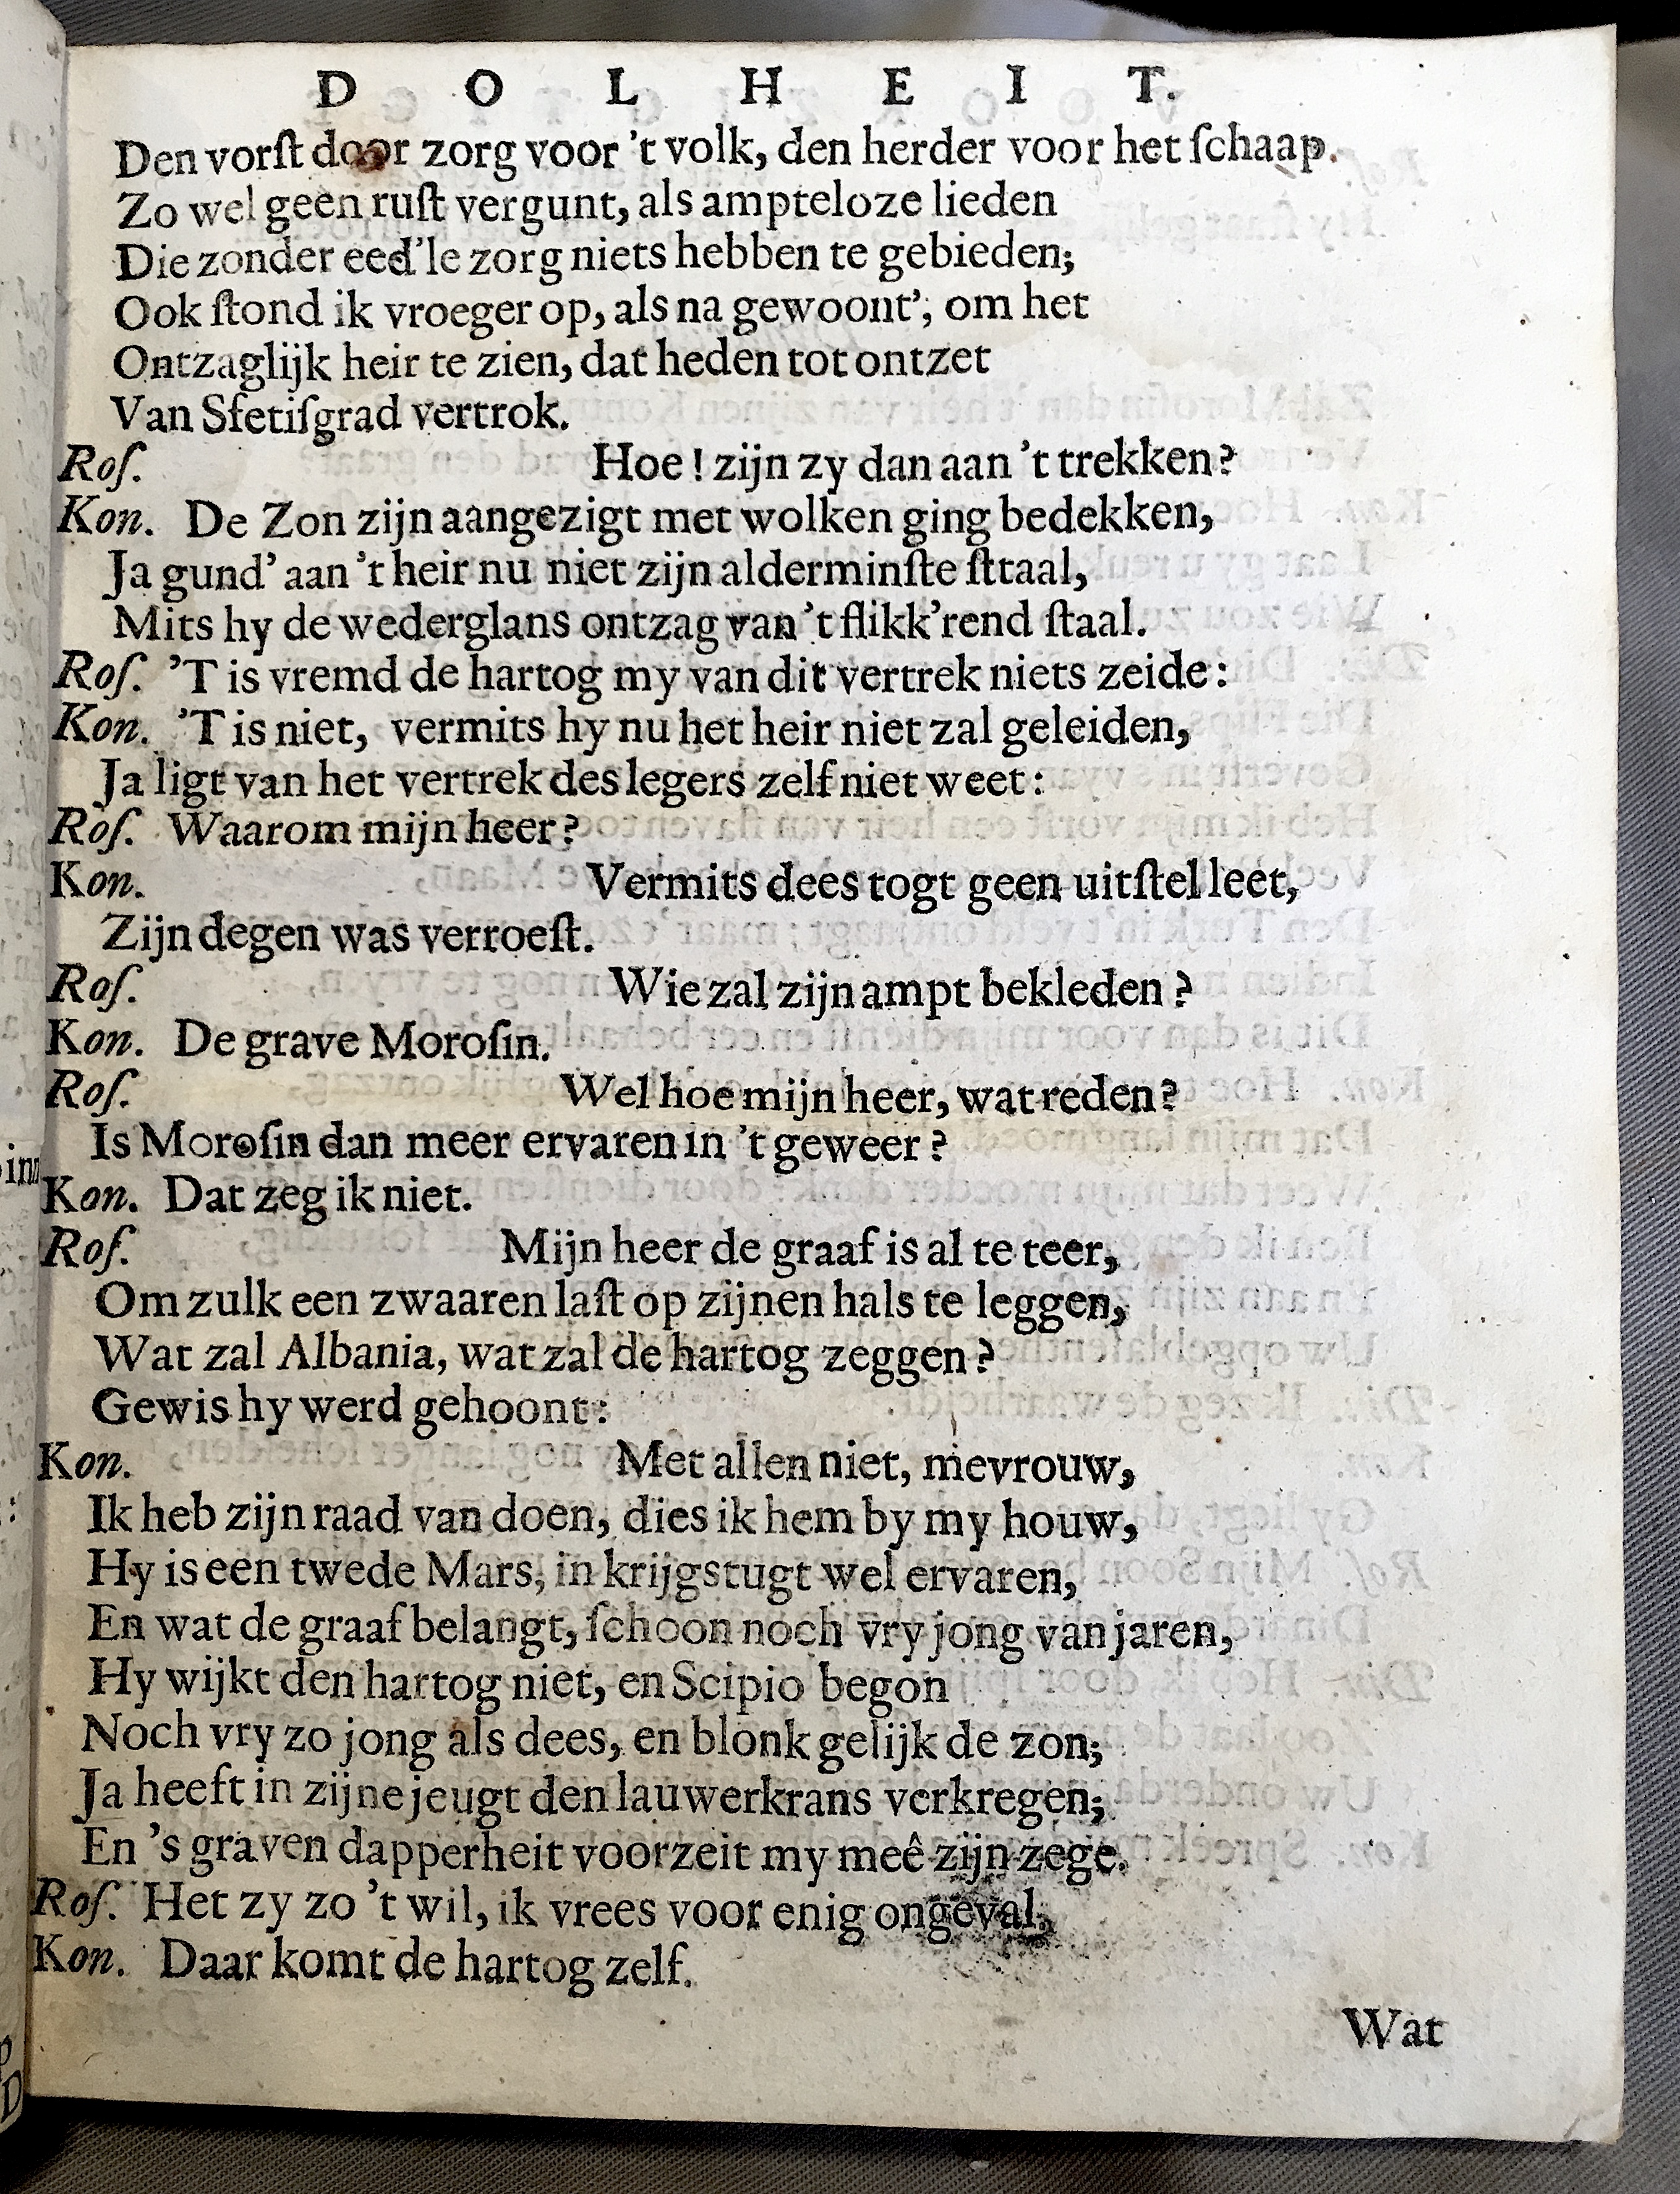 DOLHEIT.
Den vorſt door zorg voor 't volk, den herder voor het ſchaap.
Zo wel geen ruſt vergunt, als ampteloze lieden
Die zonder eed'le zorg niets hebben te gebieden;
Ook ſtond ik vroeger op, als na gewoont'; om het
Ontzaglijk heir te zien, dat heden tot ontzet
Van Sfetiſgrad vertrok.
Roſ. Hoe! zijn zy dan aan 't trekken?
Kon. De Zon zijn aangezigt met wolken ging bedekken,
Ja gund' aan 't heir nu niet zijn alderminſte ſttaal,
Mits hy de wederglans ontzag van 't flikk'rend ſtaal.
Roſ. 'T is vremd de hartog my van dit vertrek niets zeide:
Kon. 'T is niet, vermits hy nu het heir niet zal geleiden,
Ja ligt van het vertrek des legers zelf niet weet:
Roſ. Waarom mijn heer?
Kon. Vermits dees togt geen uitſtel leet,
Zijn degen was verroeſt.
Roſ. Wie zal zijn ampt bekleden?
Kon. De grave Moroſin.
Roſ. Wel hoe mijn heer, wat reden?
Is Moroſin dan meer ervaren in 't geweer?
Kon. Dat zeg ik niet.
Roſ. Mijn heer de graaf is al te teer,
Om zulk een zwaaren laſt op zijnen hals te leggen,
Wat zal Albania, wat zal de hartog zeggen?
Gewis hy werd gehoont:
Kon. Met allen niet, mevrouw,
Ik heb zijn raad van doen, dies ik hem by my houw,
Hy is een twede Mars, in krijgstugt wel ervaren,
En wat de graaf belangt, ſchoon noch vry jong van jaren,
Hy wijkt den hartog niet, en Scipio begon
Noch vry zo jong als dees, en blonk gelijk de zon;
Ja heeft in zijne jeugt den lauwerkrans verkregen;
En 's graven dapperheit voorzeit my meê zijn zege.
Roſ. Het zy zo 't wil, ik vrees voor enig ongeval,
Kon. Daar komt de hartog zelf.
Wat